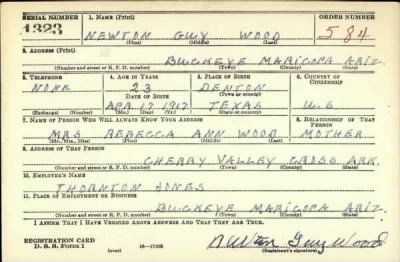 SERIAL NUMBER 1. NAME (Print) ORDER NUMBER
1323 NEWTON GUY WOOD 584
(First) (Middle) (Last)
2. ADDRESS (Print)
BUCKEYE MARICOPA ARIZ.
(Number and street or R. F. D. number) (Town) (County) (State)
3. TELEPHONE 4. AGE IN YEARS 5. PLACE OF BIRTH 6. COUNTRY OF CITIZENSHIP
NONE 23 DENTON
DATE OF BIRTH (Town or county)
APR. 17 1917 TEXAS U.S.
(Exchange) (Number) (Mo.) (Day) (Yr.) (State or country)
7. NAME OF PERSON WHO WILL ALWAYS KNOW YOUR ADDRESS 8. RELATIONSHIP OF THAT PERSON
MRS REBECCA ANN WOOD MOTHER
(Mr., Mrs., Miss) (First) (Middle) (Last)
9. ADDRESS OF THAT PERSON
CHERRY VALLEY CROSS ARK.
(Number and street or R. F. D. number) (Town) (County) (State)
10. EMPLOYER'S NAME
THORNTON JONES
11. PLACE OF EMPLOYMENT OR BUSINESS
BUCKEYE MARICOPA ARIZ.
(Number and street or R. F. D. number) (Town) (County) (State)
I AFFIRM THAT I HAVE VERIFIED ABOVE ANSWERS AND THAT THEY ARE TRUE.
REGISTRATION CARD
D. S. S. Form 1 (over) 16—17105 Newton Guy Wood
(Registrant's signature)